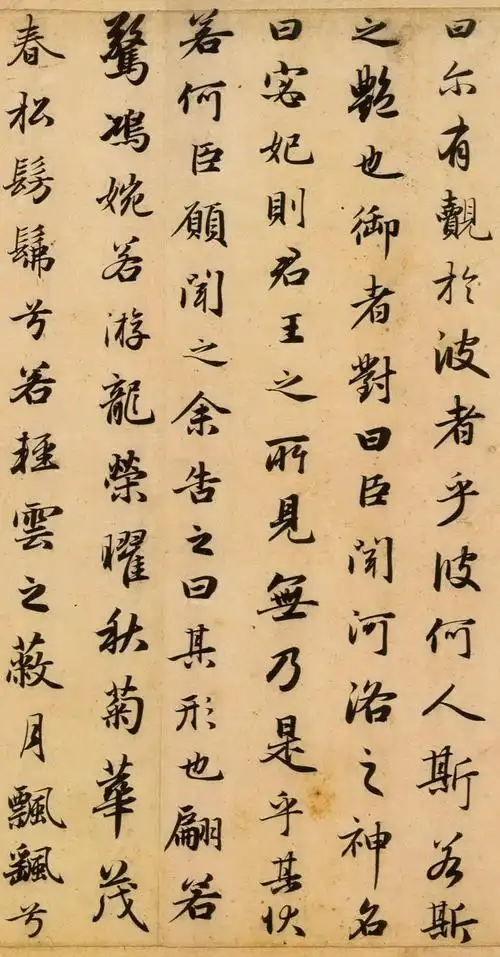 曰尔有覿於彼者乎彼何人斯若斯
之艷也御者對曰臣聞河洛之神名
曰宓妃則君王之所見無乃是乎其狀
若何臣願聞之余告之曰其形也翩若
驚鴻婉若游龍榮曜秋菊華茂
春松髣髴兮若輕雲之蔽月飄颻兮